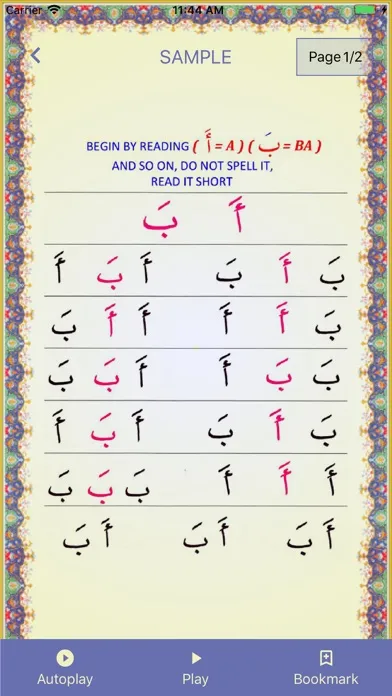 Carrier 11:44 AM
SAMPLE Page 1/2
BEGIN BY READING ( أَ = A ) ( بَ = BA )
AND SO ON, DO NOT SPELL IT,
READ IT SHORT
أَ بَ
بَ أَ بَ أَ بَ أَ
بَ أَ أَ أَ أَ بَ
بَ بَ أَ أَ بَ بَ
بَ أَ بَ أَ بَ أَ
أَ أَ أَ بَ بَ بَ
أَ بَ أَ بَ أَ بَ
Autoplay Play Bookmark